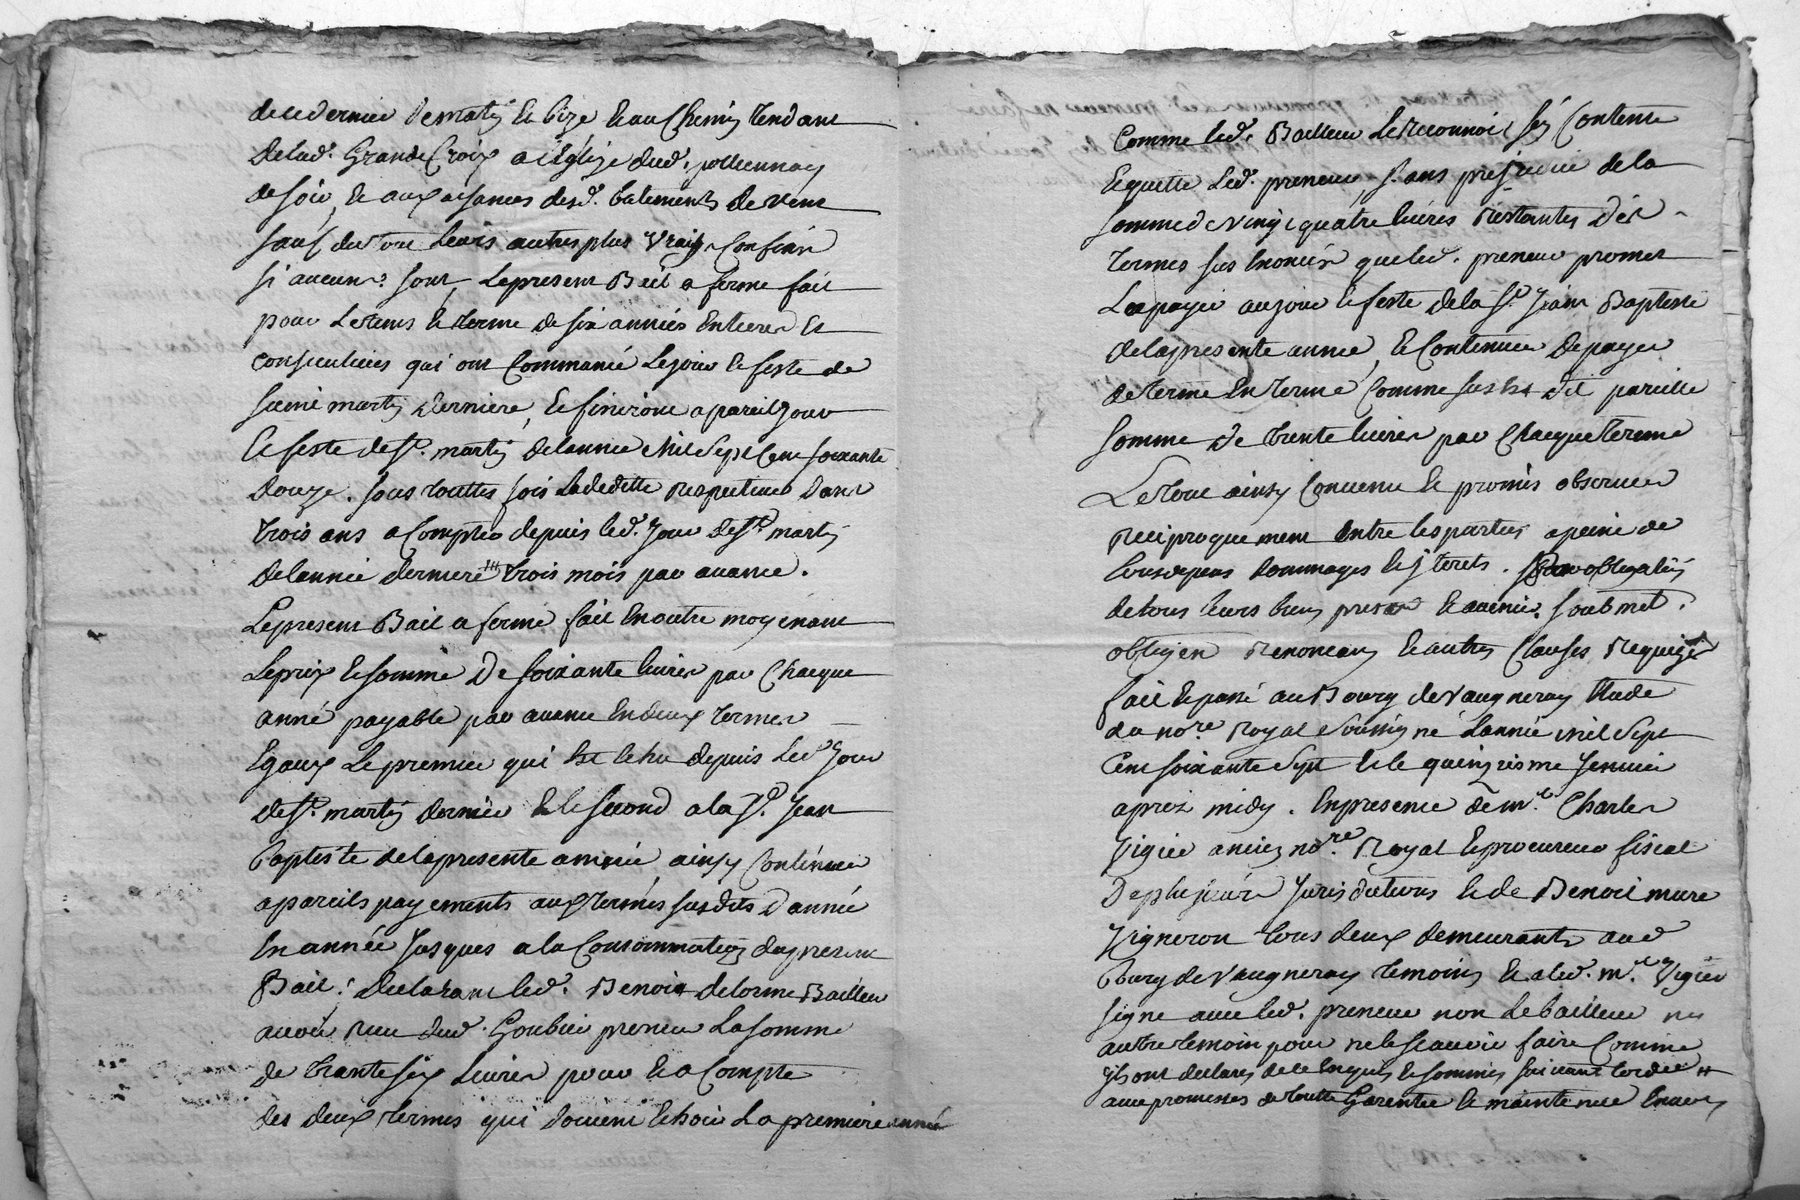 de ce dernier de matin et bize et au Chemin tendant
de lad. Grande Croix a l'Eglize dud. pollionnay
de soir, et aux aisances desd. batiments de vent
sauf du tout leurs autres plus vrais Confins
si aucuns sont, Le present Bail a ferme fait
pour Le tems et terme de six années Entieres et
consecutives qui ont Commancé Le jour et feste de
saint martin derniere, et finiront a pareil jour
et feste de St. martin de lannée Mil Sept Cent soixante
douze. sous touttes fois La deditte respective dans
trois ans a Compter depuis led. Jour de St. martin
de lannée derniere trois mois par avance.
Le present Bail a ferme fait En outre moyenant
Le prix et somme De soixante livres par Chacque
anné payable par avance En deux termes
Egaux Le premier qui Est Echu depuis Led. Jour
de St. martin dernier et le second a la St. Jean
Baptiste de la presente année ainsy Continuer
a pareils payements aux termes susdits D'année
En année Jusques a la Consommation du present
Bail. Declarant led. Benoit delorme Bailleur
avoir reçu dud. Goubier preneur La somme
de trante six Livres pour et a Compte
des deux termes qui doivent Echoir La premiere année
Comme led. Bailleur Le reconnoit s'en Contente
Et quitte Led. preneur, sans prejudice de la
somme de vingt quatre livres restantes des
termes sus Enoncés que led. preneur promet
La payer au jour et feste de la St. Jean Baptiste
de la presente année, et Continuer de payer
de terme En terme Comme sus Est dit pareille
somme de trente livres par Chacque terme
Le tout ainsy Convenu et promis observer
reciproquement Entre les parties a peine de
tous depens dommages interets. par obligation
de tous leurs biens presents et avenir. soubmet.
obligen renoncean et autres Clauses requizes
fait et passé au Bourg de Vaugneray Etude
du nore. Royal soussigné Lannée mil Sept
Cent soixante Sept et le quinzieme Jenvier
aprez midy. En presence de mre. Charles
Vigier ancien nore. Royal et procureur fiscal
De plusieurs Jurisdictions et de Benoit mure
Vigneron tous deux demeurants aud.
Bourg de Vaugneray temoins et a led. mre. Vigier
signé avec led. preneur non Le bailleur ni
autre temoin pour ne le sçavoir faire Comme
ils ont declarés de ce Enquis et sommés suivant lordce
avec promesses de toutte Garentie et maintenue Envers